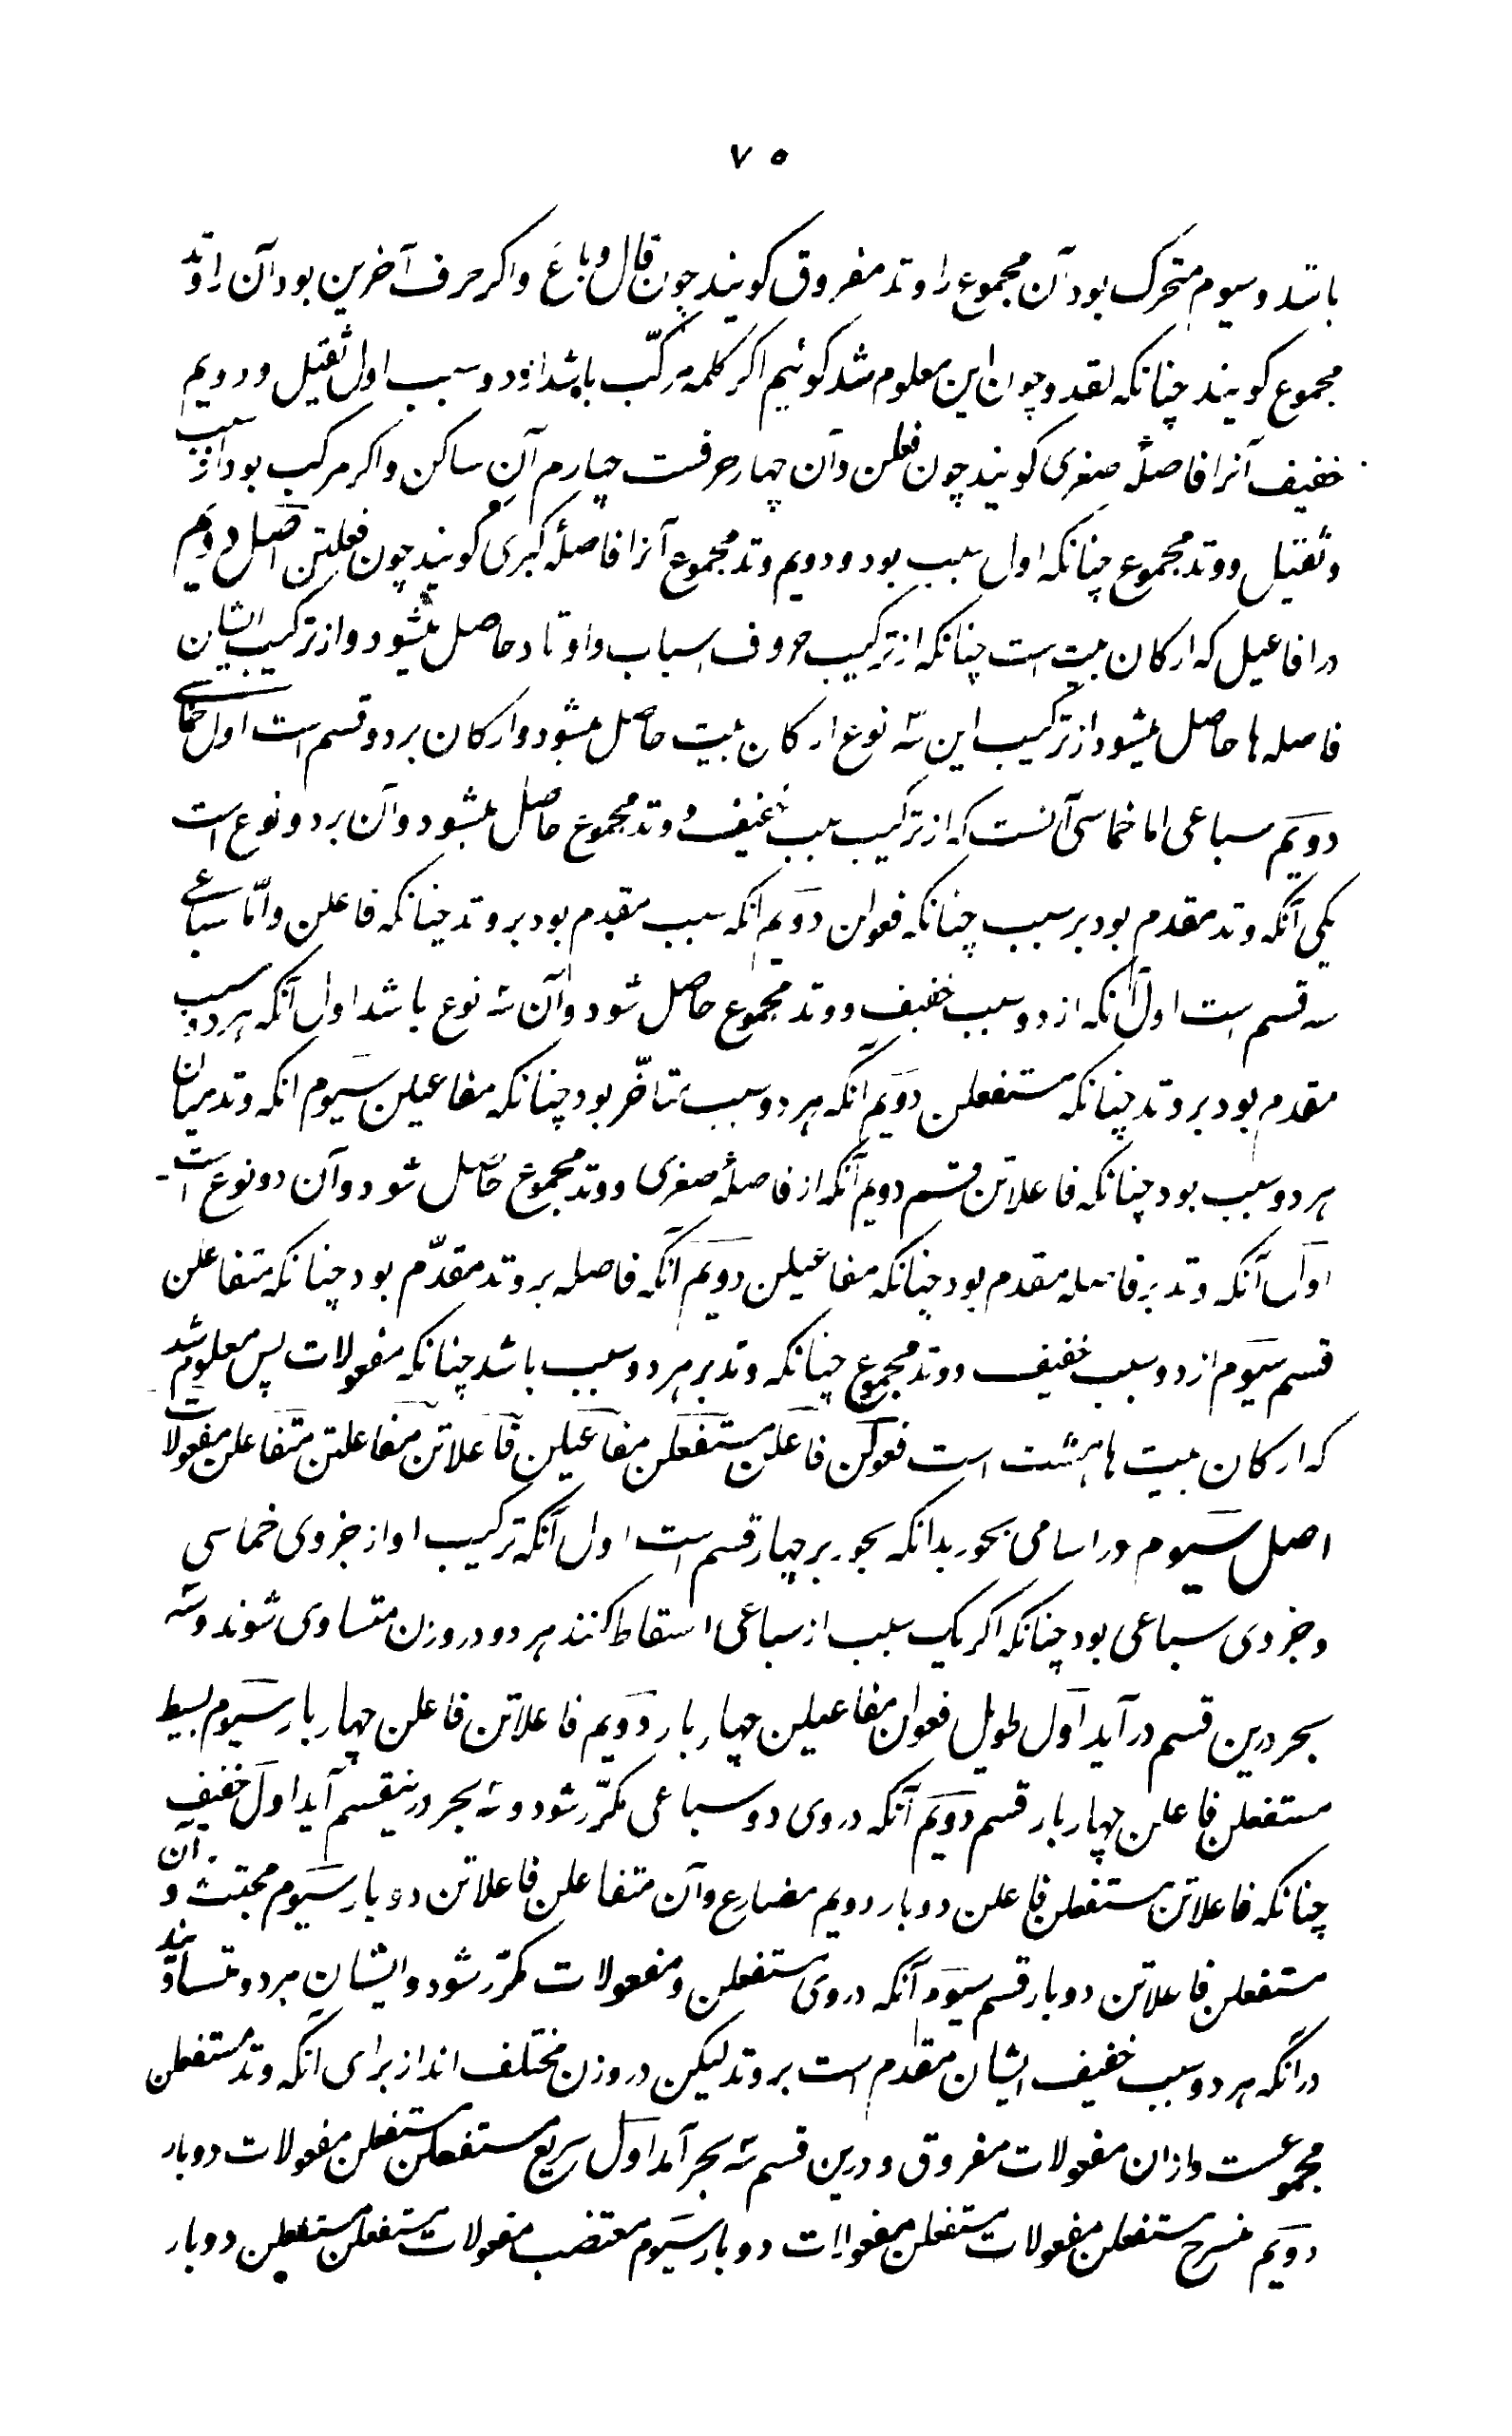 ۷۵
باشد و سیوم متحرک بود آن مجموع را وتد مفروق کویند چون قال و باع واکر حرف آخرین بود آن را وتد
مجموع کویند چنانکه لقد و چون این معلوم شد کوئیم اکر کلمه مرکّب باشد از دو سبب اول ثقیل و دویم
خفیف آنرا فاصلهٔ صغری کویند چون فعلن و آن چهار حرفست چهارم آن ساکن واکر مرکب بود از سبب
و ثقیل و وتد مجموع چنانکه اول سبب بود و دویم وتد مجموع آنرا فاصلهٔ کبری کویند چون فعلتن اصل دویم
در افاعیل که ارکان بیت است چنانکه از ترکیب حروف اسباب و اوتاد حاصل میشود و از ترکیب ایشان
فاصله ها حاصل میشود از ترکیب این سه نوع ارکان بیت حاصل میشود و ارکان بر دو قسم است اول خماسی
دویم سباعی اما خماسی آنست که از ترکیب سبب خفیف و وتد مجموع حاصل میشود و آن بر دو نوع است
یکی آنکه وتد مقدم بود بر سبب چنانکه فعولن دویم انکه سبب مقدم بود بر وتد چنانکه فاعلن وامّا سباعی
سه قسم است اول آنکه از دو سبب خفیف و وتد مجموع حاصل شود و آن سه نوع باشد اول آنکه هر دو سبب
مقدم بود بر وتد چنانکه مستفعلن دویم آنکه هر دو سبب متاخّر بود چنانکه مفاعیلن سیوم انکه وتد میان
هر دو سبب بود چنانکه فاعلاتن قسم دویم آنکه از فاصلهٔ صغری و وتد مجموع حاصل شود و آن دو نوع است
اول آنکه وتد بر فاصله مقدم بود چنانکه مفاعیلن دویم آنکه فاصله بر وتد مقدّم بود چنانکه متفاعلن
قسم سیوم از دو سبب خفیف و وتد مجموع چنانکه وتد بر هر دو سبب باشد چنانکه مفعولات پس معلوم شد
که ارکان بیت ها هشت است فعولن فاعلن مستفعلن مفاعیلن فاعلاتن مفاعلتن متفاعلن مفعولات
اصل سیوم در اسامی بحور بدانکه بحور بر چهار قسم است اول آنکه ترکیب او از جزوی خماسی
و جزوی سباعی بود چنانکه اکر یک سبب از سباعی اسقاط کنند هر دو در وزن متساوی شوند و سه
بحر درین قسم در آید اول طویل فعولن مفاعیلن چهار بار دویم فاعلاتن فاعلن چهار بار سیوم بسیط
مستفعلن فاعلن چهار بار قسم دویم آنکه در وی دو سباعی مکرّر شود و سه بحر درینقسم آید اول خفیف
چنانکه فاعلاتن مستفعلن فاعلن دو بار دویم مضارع و آن متفاعلن فاعلاتن دو بار سیوم مجتث و آن
مستفعلن فاعلاتن دو بار قسم سیوم آنکه در وی مستفعلن و مفعولات مکرّر شود و ایشان هر دو متساویند
در آنکه هر دو سبب خفیف ایشان مقدم است بر وتد لیکن در وزن مختلف اند از برای آنکه وتد مستفعلن
مجموعست و از ان مفعولات مفروق و درین قسم سه بحر آمد اول سریع مستفعلن مستفعلن مفعولات دو بار
دویم منسرح مستفعلن مفعولات مستفعلن مفعولات دو بار سیوم مقتضب مفعولات مستفعلن مستفعلن دو بار